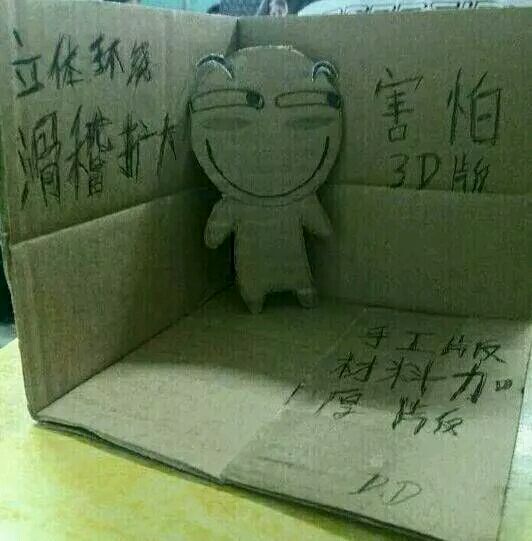 立体环绕
滑稽扩大
害怕
3D版
手工版
材料加
厚版
D.D